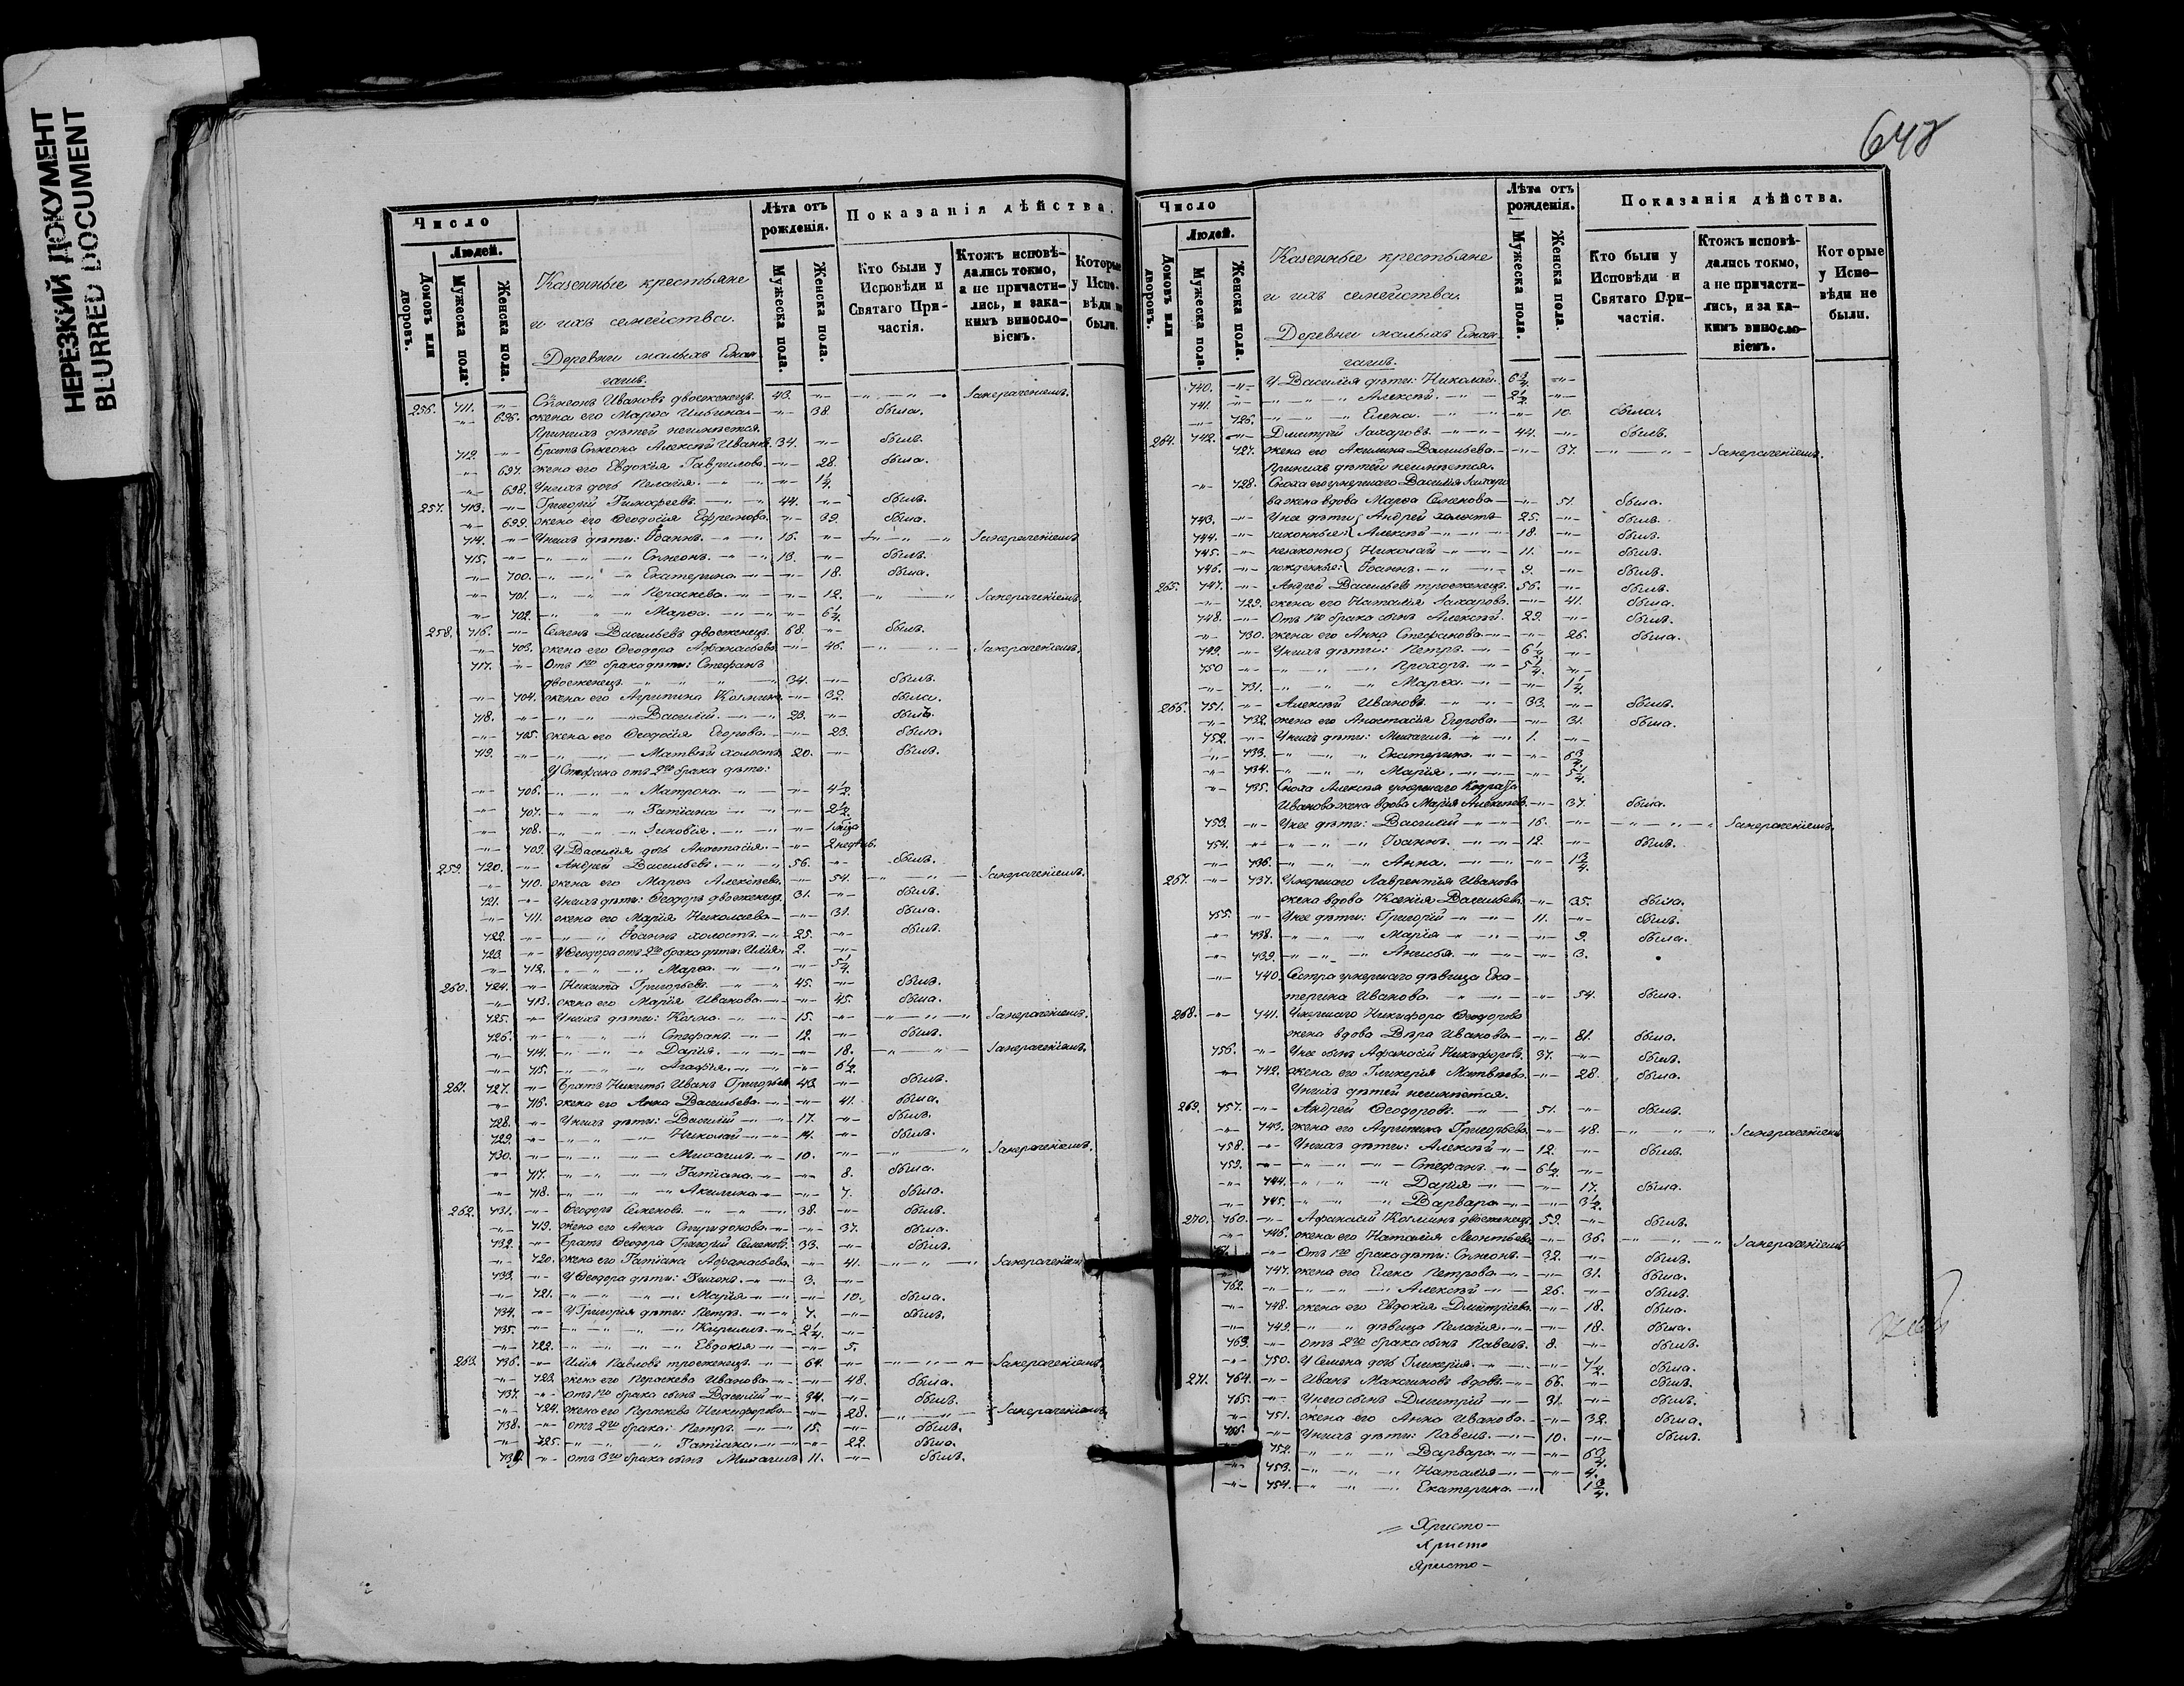 НЕРЕЗКИЙ ДОКУМЕНТ
BLURRED DOCUMENT
Число
Людей.
Домовъ или дворовъ.
Мужеска пола.
Женска пола.
Казенные крестьяне
и ихъ семейства.
Деревни малыхъ
Лѣта отъ рожденія.
Мужеска пола.
Женска пола.
Показанія дѣйства.
Кто были у Исповѣди и Святаго Причастія.
Ктожъ исповѣдались токмо, а не причастились, и за какимъ винословіемъ.
Которые у Исповѣди не были.
256. 711. -"- Сѵмеонъ Ивановъ двоеженецъ. 43. -"- -"- Занерачениемъ.
-"- 696. жена его Марѳа Ильина -"- 38. была.
При нихъ дѣтей неимѣется.
712. -"- Братъ Сѵмеона Алексѣй Иванов. 34. -"- былъ.
-"- 697. жена его Евдокія Гаврилова. -"- 28. была.
-"- 698. У нихъ дочь Пелагія. -"- 1 1/4.
257. 713. -"- Григорій Тимофеевъ. 44. -"- былъ.
-"- 699. жена его Ѳеодосія Ефремова. -"- 39. была.
714. -"- У нихъ дѣти: Іоаннъ. 16. -"- -"- Занерачениемъ
715. -"- Сѵмеонъ. 13. -"- былъ.
-"- 700. Екатерина -"- 18. была.
-"- 701. Параскева. -"- 12. -"- Занерачениемъ.
-"- 702. Марѳа. -"- 6 1/4.
258. 716. -"- Семенъ Васильевъ двоеженецъ. 68. -"- былъ.
-"- 703. жена его Ѳеодора Афанасьева. -"- 46. -"- Занерачениемъ.
717. -"- Отъ 1го брака дѣти: Стефанъ
двоеженецъ. 34. -"- былъ.
-"- 704. жена его Агрипина Козмина. -"- 32. была.
718. -"- Василій. 23. -"- былъ.
-"- 705. жена его Ѳеодосія Егорова. -"- 23. была.
719. -"- Матвѣй холостъ 20. -"- былъ.
У Стефана отъ 2го брака дѣти:
-"- 706. Матрона. -"- 4 1/2.
-"- 707. Татіана -"- 2 1/2.
-"- 708. Зиновія. -"-
-"- 709. У Василія дочь Анастасія. -"- 2 недѣль.
259. 720. -"- Андрей Васильевъ. 56. -"- былъ.
-"- 710. жена его Марѳа Алексѣева. -"- 54. -"- Занерачениемъ.
721. -"- У нихъ дѣти: Ѳеодоръ двоеженецъ. 31. -"- былъ.
-"- 711. жена его Марія Николаева -"- 31. была.
722. -"- Іоаннъ холостъ. 25. -"- былъ.
723. -"- У Ѳеодора отъ 2го брака дѣти: Илія. 2. -"-
-"- 712. Марѳа. -"- 5 1/4.
260. 724. -"- Никита Григорьевъ. 45. -"- былъ.
-"- 713. жена его Марія Иванова -"- 45. была.
725. -"- У нихъ дѣти: Козма. 15. -"- -"- Занерачениемъ.
726. -"- Стефанъ. 12. -"- былъ.
-"- 714. Дарія. -"- 18. -"- Занерачениемъ.
-"- 715. Агафія. -"- 6 1/2.
261. 727. -"- Братъ Никиты Иванъ Григорьев. 43. -"- былъ.
-"- 716. жена его Анна Васильева. -"- 41. была.
728. -"- У нихъ дѣти: Василій 17. -"- былъ.
729. -"- Николай 14. -"- былъ.
730. -"- Михаилъ. 10. -"- -"- Занерачениемъ.
-"- 717. Татіана. -"- 8. была.
-"- 718. Акилина -"- 7. была.
262. 731. -"- Ѳеодоръ Семеновъ. 38. -"- былъ.
-"- 719. жена его Анна Спиридонова -"- 37. была.
732. -"- Братъ Ѳеодора Григорій Семеновъ. 33. -"- былъ.
-"- 720. жена его Татіана Афанасьева. -"- 41. -"- Занерачениемъ
733. -"- У Ѳеодора дѣти: 3. -"-
-"- 721. Марія -"- 10. была.
734. -"- У Григорія дѣти: Петръ. 7. -"- былъ.
735. -"- Кирилъ. 2 1/4. -"-
-"- 722. Евдокія -"- 5.
263. 736. -"- Илія Павловъ троеженецъ. 64. -"- -"- Занерачениемъ.
-"- 723. жена его Параскева Иванова -"- 48. была.
737. -"- отъ 1го брака сынъ Василій 34. -"- былъ.
-"- 724. жена его Параскева Никифорова -"- 28. -"- Занерачениемъ.
738. -"- отъ 2го брака: Петръ. 15. -"- былъ.
-"- 725. Татіана. -"- 22. была.
739 -"- отъ 3го брака сынъ Михаилъ 11. -"- былъ.
648
Число
Людей.
Домовъ или дворовъ.
Мужеска пола.
Женска пола.
Казенные крестьяне
и ихъ семейства.
Деревни малыхъ
Лѣта отъ рожденія.
Мужеска пола.
Женска пола.
Показанія дѣйства.
Кто были у Исповѣди и Святаго Причастія.
Ктожъ исповѣдались токмо, а не причастились, и за какимъ винословіемъ.
Которые у Исповѣди не были.
740. -"- У Василія дѣти: Николай. 6 3/4. -"-
741. -"- Алексѣй. 2 1/2. -"-
-"- 726. Елена. -"- 10. была.
264. 742. -"- Дмитрій Захаровъ. 44. -"- былъ.
727. жена его Акилина Васильева -"- 37. -"- Занерачениемъ.
При нихъ дѣтей неимѣется.
-"- 728. Сноха его умершаго Василія Захаро
ва жена вдова Марѳа Семенова -"- 51. была.
743. -"- У нее дѣти Андрей холостъ 25. -"- былъ.
744. -"- законные: Алексѣй 18. -"- былъ.
745. -"- незаконно Николай 11. -"- былъ.
746. -"- рожденные: Іоаннъ. 9. -"- былъ.
265. 747. -"- Андрей Васильевъ троеженецъ. 56. -"- былъ.
-"- 729. жена его Наталія Захарова. -"- 41. была.
748. -"- Отъ 1го брака сынъ Алексѣй. 29. -"- былъ.
-"- 730. жена его Анна Стефанова -"- 26. была.
749. -"- У нихъ дѣти: Петръ. 6 1/2 -"-
750 -"- Прохоръ. 5 1/4. -"-
-"- 731. Марѳа. -"- 1 1/4.
266. 751. -"- Алексѣй Ивановъ. 33. -"- былъ.
-"- 732. жена его Анастасія Егорова. -"- 31. была.
752. -"- У нихъ дѣти: Михаилъ. 1. -"-
-"- 733. Екатерина. -"- 6 3/4.
-"- 734. Марія. -"- 5 1/4.
-"- 735. Сноха Алексѣя умершаго
Иванова жена вдова Марія Алексѣева. -"- 37. была.
753. -"- У нее дѣти: Василій 16. -"- -"- Занерачениемъ.
754. -"- Іоаннъ. 12. -"- былъ.
-"- 736. Анна. -"- 1 3/4.
267. -"- 737. Умершаго Лаврентія Иванова
жена вдова Ксенія Васильева -"- 35. была.
755. -"- У нее дѣти: Григорій 11. -"- былъ.
-"- 738. Марія -"- 9. была.
-"- 739. Анисья. -"- 3.
-"- 740. Сестра умершаго дѣвица Ека-
терина Иванова. -"- 54. была.
268. -"- 741. Умершаго Никифора Ѳеодорова
жена вдова Вѣра Иванова -"- 81. была.
756. -"- У нее сынъ Афанасій Никифоровъ. 37. -"- былъ.
-"- 742. жена его Гликерія Матвѣева. -"- 28. была.
У нихъ дѣтей неимѣется.
269. 757. -"- Андрей Ѳеодоровъ. 51. -"- былъ.
-"- 743. жена его Агрипина Григорьева. -"- 48. -"- Занерачениемъ
758. -"- У нихъ дѣти: Алексѣй 12. -"- былъ.
759. -"- Стефанъ. 6 1/2. -"-
-"- 744. Дарія -"- 17. была.
-"- 745. Варвара -"- 3 1/2.
270. 760. -"- Афанасій Козминъ двоеженецъ. 59. -"- былъ.
-"- 746. жена его Наталія Леонтьева -"- 36. -"- Занерачениемъ
761. -"- Отъ 1го брака дѣти: Сѵмеонъ. 32. -"- былъ.
747. жена его Елена Петрова -"- 31. была.
762. -"- Алексѣй 26. -"- былъ.
-"- 748. жена его Евдокія Дмитріева. -"- 18. была.
-"- 749. дѣвица Пелагія. -"- 18. была.
763. -"- отъ 2го брака сынъ Павелъ. 8. -"- былъ.
-"- 750. У Семена дочь Гликерія. -"- 7 1/2. была.
271. 764. -"- Иванъ Максимовъ вдовъ. 66. -"- былъ.
765. -"- У него сынъ Дмитрій 31. -"- былъ.
-"- 751. жена его Анна Иванова. -"- 32. была.
766. -"- У нихъ дѣти: Павелъ. 10. -"- былъ.
-"- 752. Варвара -"- 6 3/4.
-"- 753. Наталія -"- 4.
-"- 754. Екатерина. 1 3/4.
Христо-
Христо
Христо-